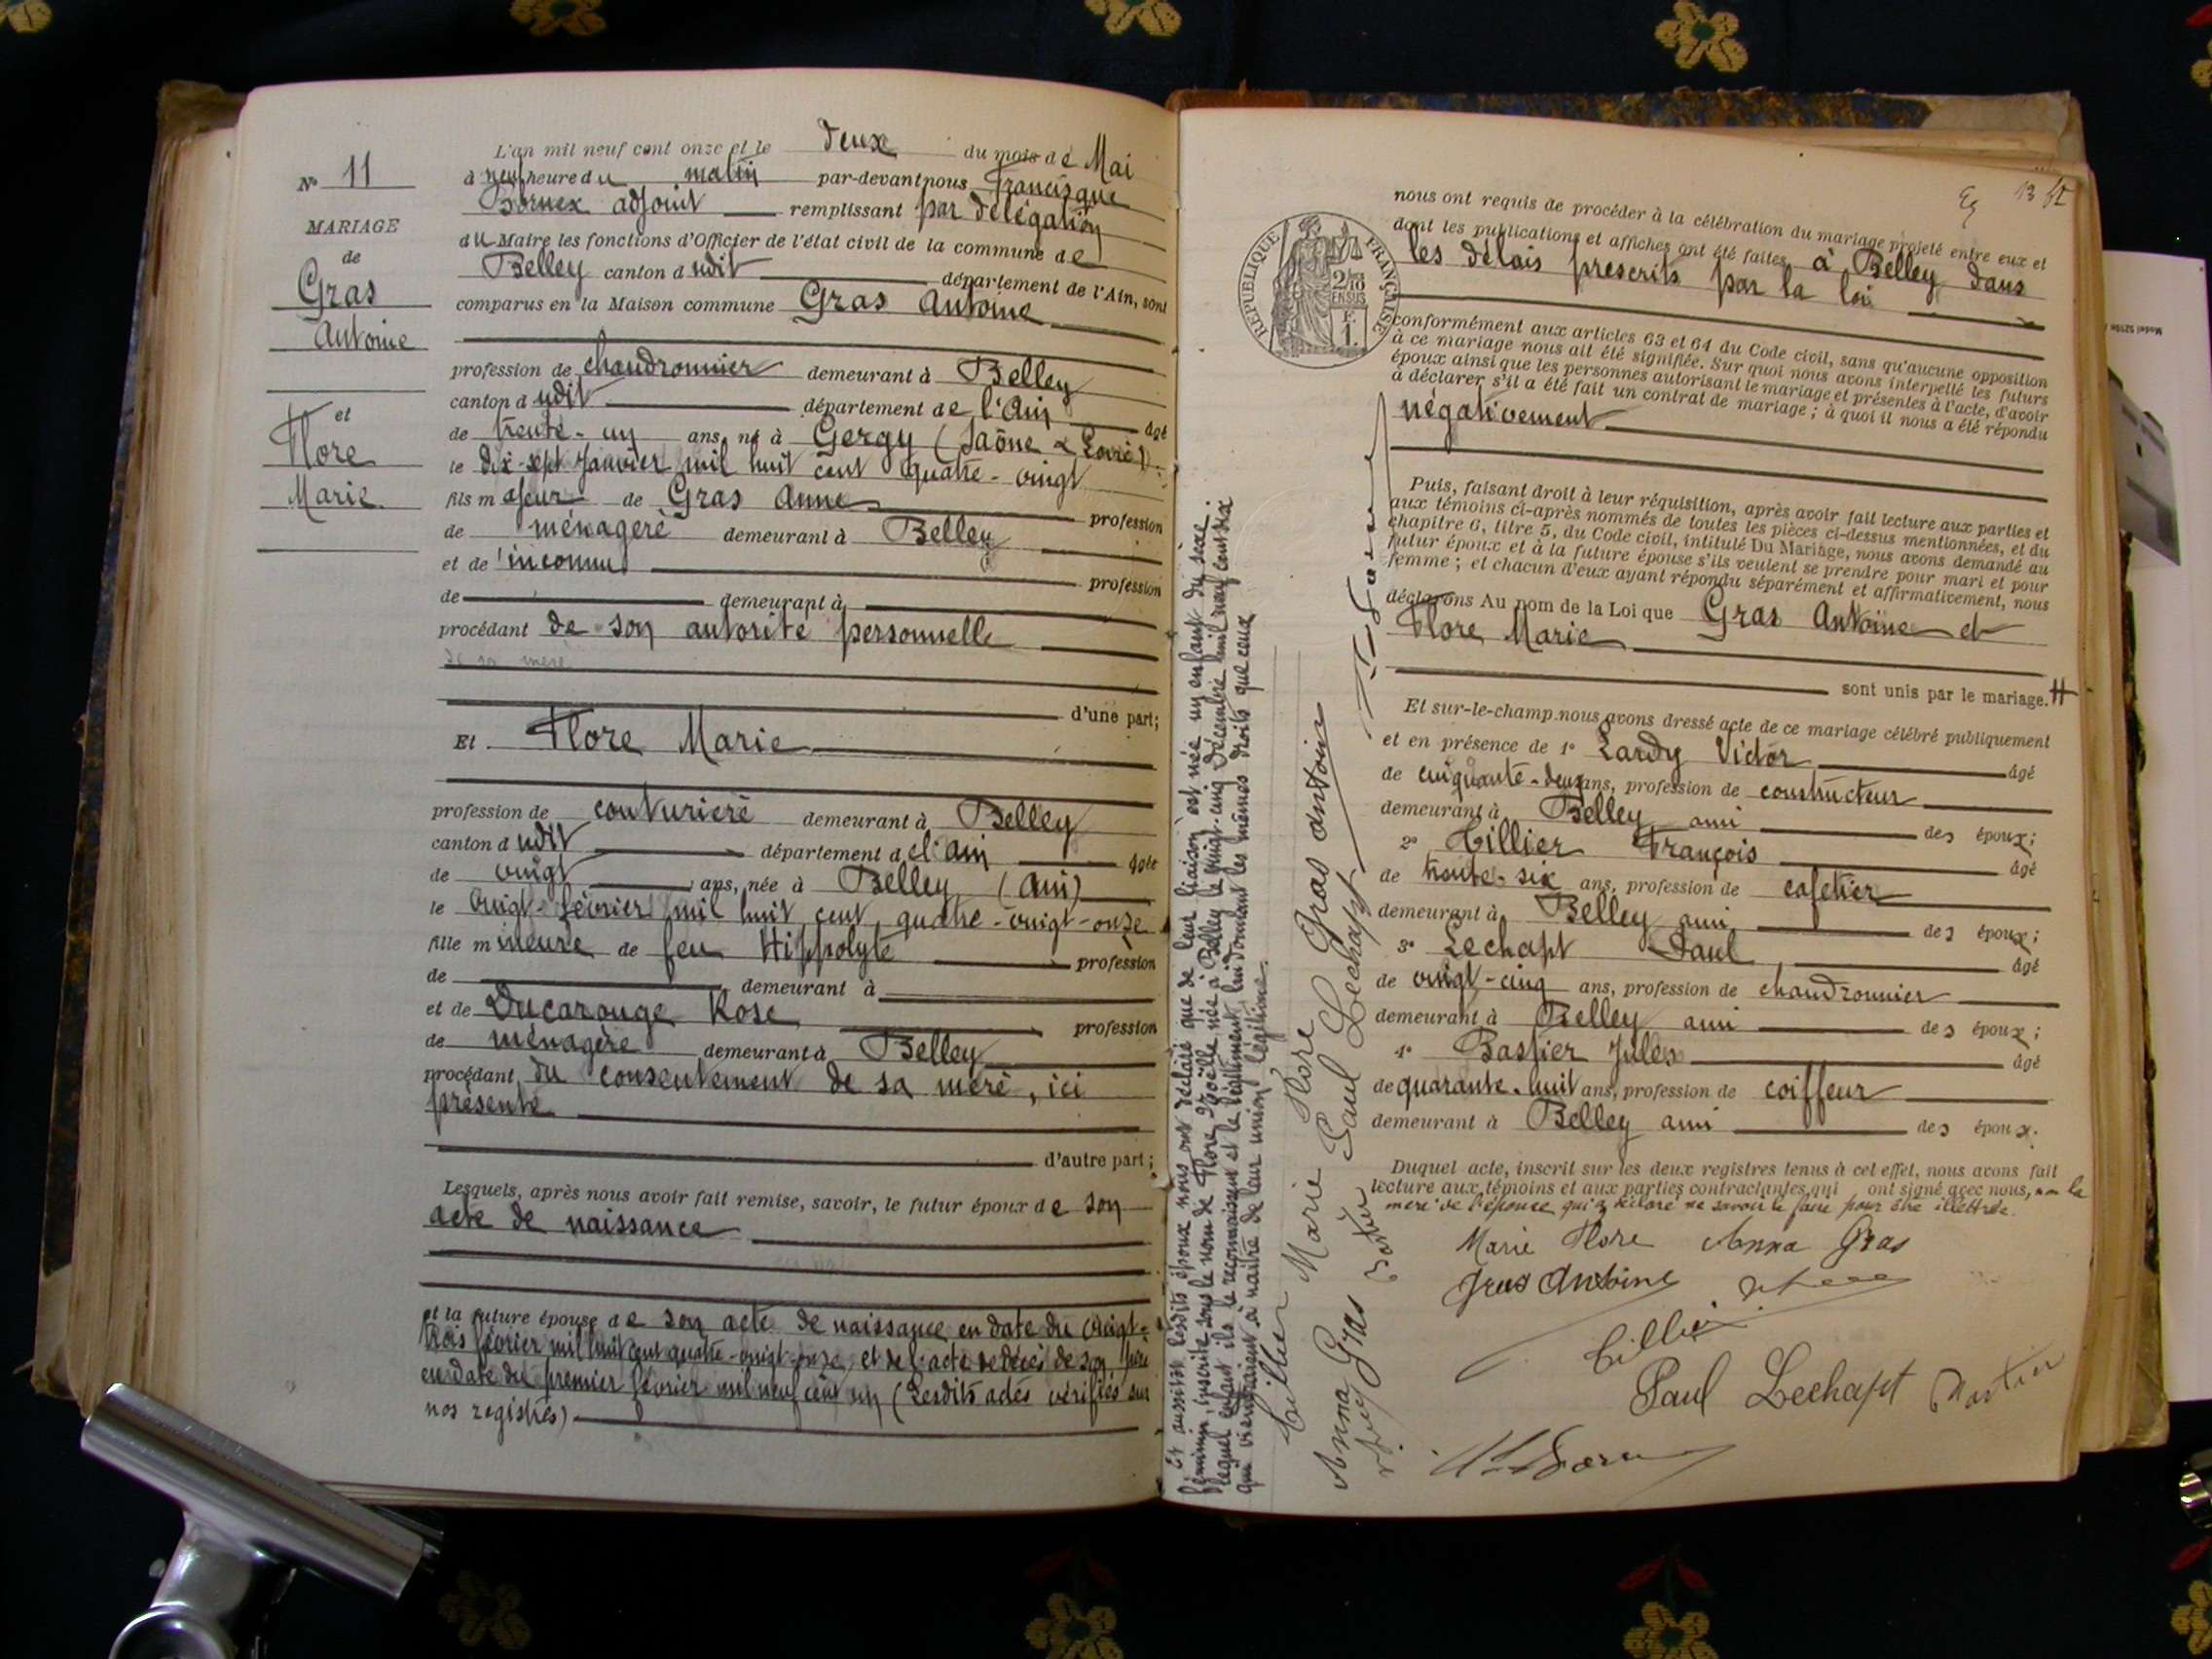 N° 11
MARIAGE
de
Gras
Antoine
et
Flore
Marie.
L'an mil neuf cent onze et le deux du mois de Mai
à neuf heure du matin par-devant nous Francisque
Bornex adjoint remplissant par délégation
du Maire les fonctions d'Officier de l'état civil de la commune de
Belley canton dudit département de l'Ain, sont
comparus en la Maison commune Gras Antoine
profession de chaudronnier demeurant à Belley
canton dudit département de l'Ain âgé
de trente-un ans, né à Gergy (Saône & Loire)
le dix-sept Janvier mil huit cent quatre-vingt
fils majeur de Gras Anne profession
de ménagère demeurant à Belley
et de inconnu profession
de demeurant à
procédant de son autorité personnelle
de sa mère
d'une part;
Et Flore Marie
profession de couturière demeurant à Belley
canton dudit département de l'Ain âgée
de vingt ans, née à Belley (Ain)
le vingt-février mil huit cent quatre-vingt-onze
fille mineure de feu Hippolyte profession
de demeurant à
et de Ducarouge Rose profession
de ménagère demeurant à Belley
procédant du consentement de sa mère, ici
présente
d'autre part;
Lesquels, après nous avoir fait remise, savoir, le futur époux de son
acte de naissance
et la future épouse de son acte de naissance en date du vingt-
trois février mil huit cent quatre-vingt-onze, et de l'acte de décès de son père
en date du premier février mil neuf cent un (Lesdits actes vérifiés sur
nos registres)
Et aussitôt lesdits époux nous ont déclaré que de leur liaison est née un enfant du sexe
féminin, inscrite sous le nom de Flore Noëlle née à Belley le vingt-cinq Décembre mil neuf cent six
lequel enfant ils le reconnaissent et le légitiment lui donnant les mêmes droits que ceux
qui viendraient à naître de leur union légitime.
Tillier Marie Flore Gras Antoine
Anna Gras Paul Lechapt
REPUBLIQUE FRANÇAISE
2/10
EN SUS
F.
1.
13
nous ont requis de procéder à la célébration du mariage projeté entre eux et
dont les publications et affiches ont été faites à Belley dans
les délais prescrits par la loi
conformément aux articles 63 et 64 du Code civil, sans qu'aucune opposition
à ce mariage nous ait été signifiée. Sur quoi nous avons interpellé les futurs
époux ainsi que les personnes autorisant le mariage et présentes à l'acte, d'avoir
à déclarer s'il a été fait un contrat de mariage; à quoi il nous a été répondu
négativement
Puis, faisant droit à leur réquisition, après avoir fait lecture aux parties et
aux témoins ci-après nommés de toutes les pièces ci-dessus mentionnées, et du
chapitre 6, titre 5, du Code civil, intitulé Du Mariage, nous avons demandé au
futur époux et à la future épouse s'ils veulent se prendre pour mari et pour
femme; et chacun d'eux ayant répondu séparément et affirmativement, nous
déclarons Au nom de la Loi que Gras Antoine et
Flore Marie
sont unis par le mariage.
Et sur-le-champ nous avons dressé acte de ce mariage célébré publiquement
et en présence de 1° Lardy Victor âgé
de cinquante-deux ans, profession de constructeur
demeurant à Belley ami des époux;
2° Tillier François âgé
de trente-six ans, profession de cafetier
demeurant à Belley ami des époux;
3° Lechapt Paul âgé
de vingt-cinq ans, profession de chaudronnier
demeurant à Belley ami des époux;
4° Bastier Jules âgé
de quarante-huit ans, profession de coiffeur
demeurant à Belley ami des époux.
Duquel acte, inscrit sur les deux registres tenus à cet effet, nous avons fait
lecture aux témoins et aux parties contractantes, qui ont signé avec nous, non la
mère de l'épouse qui a déclaré ne savoir le faire pour être illettrée.
Marie Flore Anna Gras
Gras Antoine
Tillier
Paul Lechapt Bastier